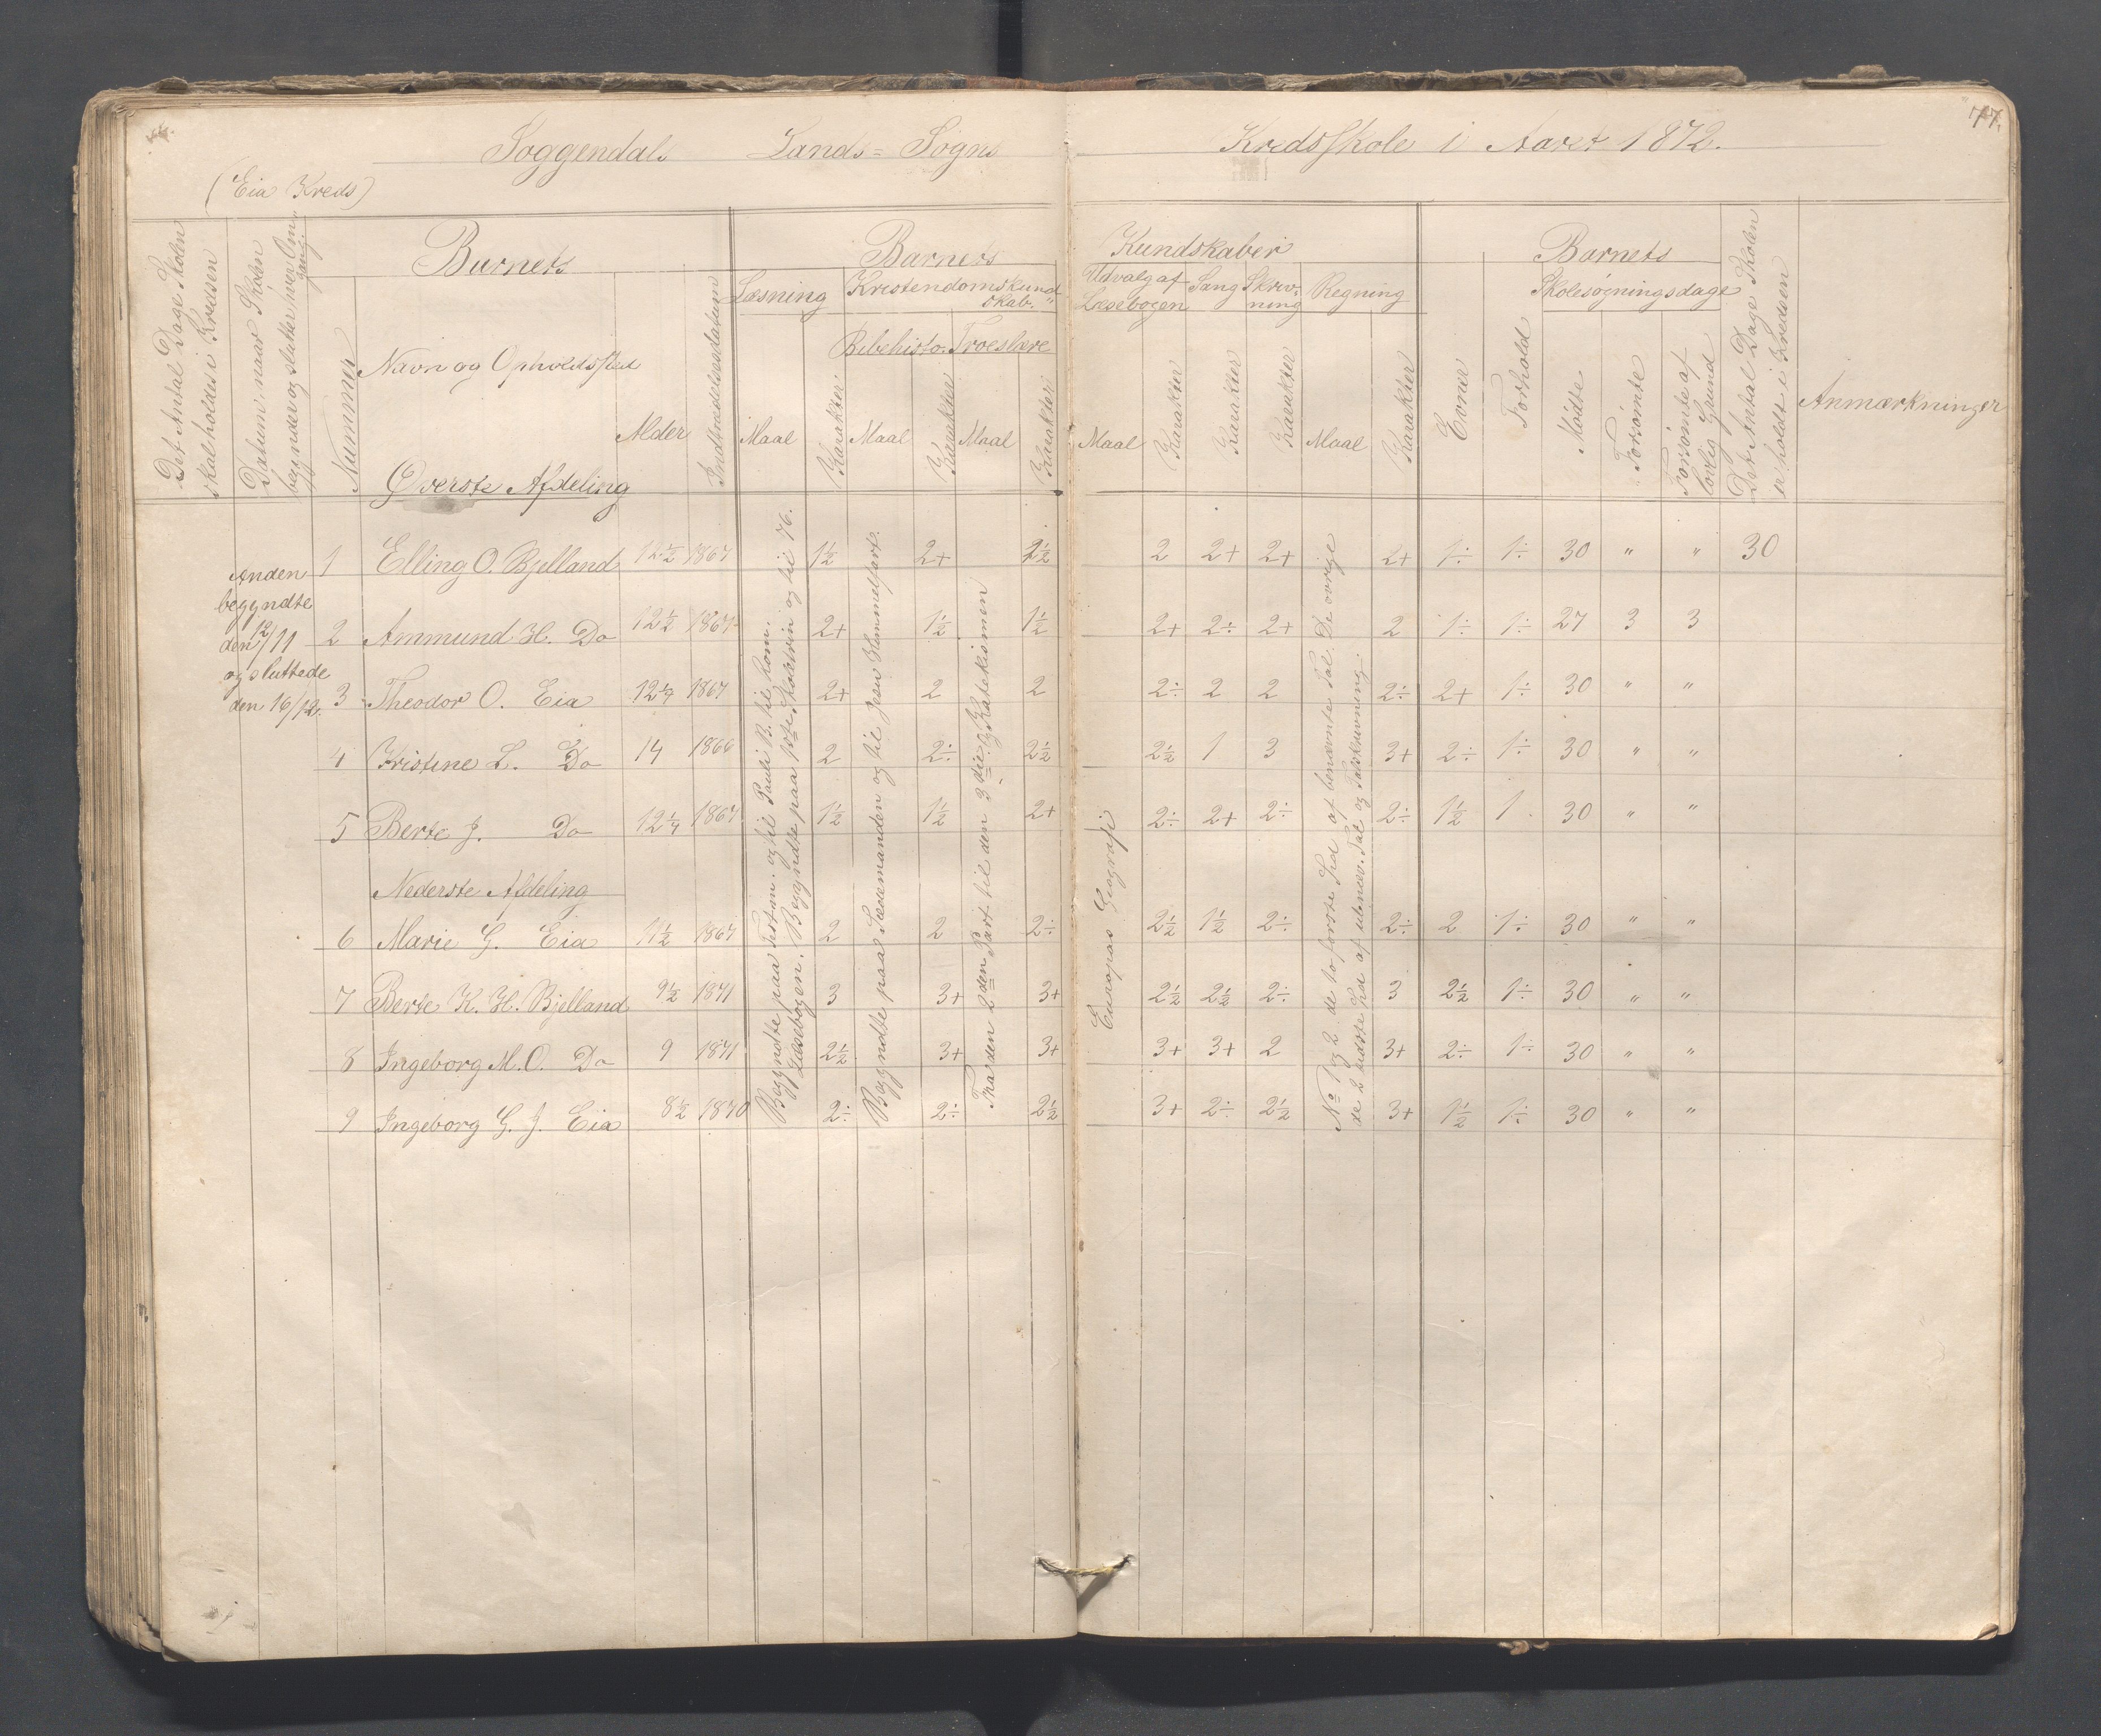 77.
Soggendals Lands=Sogns Kredsskole i Aaret 1872.
(Eia Kreds)
Det Antal Dage Skolen skal holdes i Kredsen
Datum, naar Skolen begynder og slutter hver Omgang.
Nummer
Barnets
Navn og Opholdssted
Alder
Indtrædelsesdatum
Barnets Kundskaber
Læsning
Maal
Karakter
Kristendomskundskab.
Bibelhisto.
Maal
Karakter
Troeslære
Maal
Karakter
Udvalg af Læsebogen
Maal
Karakter
Sang
Karakter
Skrivning
Karakter
Regning
Maal
Karakter
Evner
Forhold
Barnets
Skolesøgningsdage
Mødte
Forsømte
Forsømte af lovlig Grund
Det Antal Dage Skolen er holdt i Kredsen
Anmærkninger
Øverste Afdeling
Anden
begyndte
den 12/11
og sluttede
den 16/12.
1 Elling O. Bjelland 12½ 1867 1½ 2+ 2½ 2 2+ 2+ 2+ 1÷ 1÷ 30 " " 30
2 Ammund H. Do 12½ 1867 2+ 1½ 1½ 2+ 2÷ 2+ 2 1÷ 1÷ 27 3 3
3 Theodor O. Eia 12¼ 1867 2+ 2 2 2÷ 2 2 2÷ 2+ 1÷ 30 " "
4 Kristine L. Do 14 1866 2 2÷ 2½ 2½ 1 3 3+ 2÷ 1÷ 30 " "
5 Berte J. Do 12¼ 1867 1½ 1½ 2+ 2÷ 2+ 2÷ 2÷ 1½ 1 30 " "
Nederste Afdeling
6 Marie G. Eia 11½ 1867 2 2 2÷ 2½ 1½ 2÷ 2÷ 2 1÷ 30 " "
7 Berte K. H. Bjelland 9½ 1871 3 3+ 3+ 2½ 2½ 2÷ 3 2½ 1÷ 30 " "
8 Ingeborg M. O. Do 9 1871 2½ 3+ 3+ 3+ 3+ 2 3+ 2÷ 1÷ 30 " "
9 Ingeborg G. J. Eia 8½ 1870 2÷ 2÷ 2½ 3+ 2÷ 2½ 3+ 1½ 1÷ 30 " "
Begyndte paa Testm. og til Pauli B. til Rom.
Læsebogen. Begyndte paa 1ste Skoletrin og til 76.
Begyndte paa Sædemanden og til Jesu Himmelfart.
Fra den 2den Part til den 3die i Katekismen
Europas Geografi
No 1 og 2 de to første Led af benævnte Tal. De øvrige
de 2 sidste Led af ubenæv. Tal og Talskrivning.